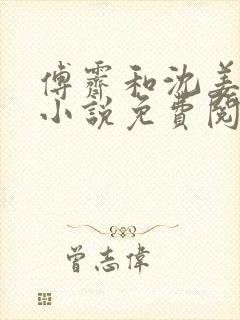 傅霽和沈姜
小說免費閱
曾志偉